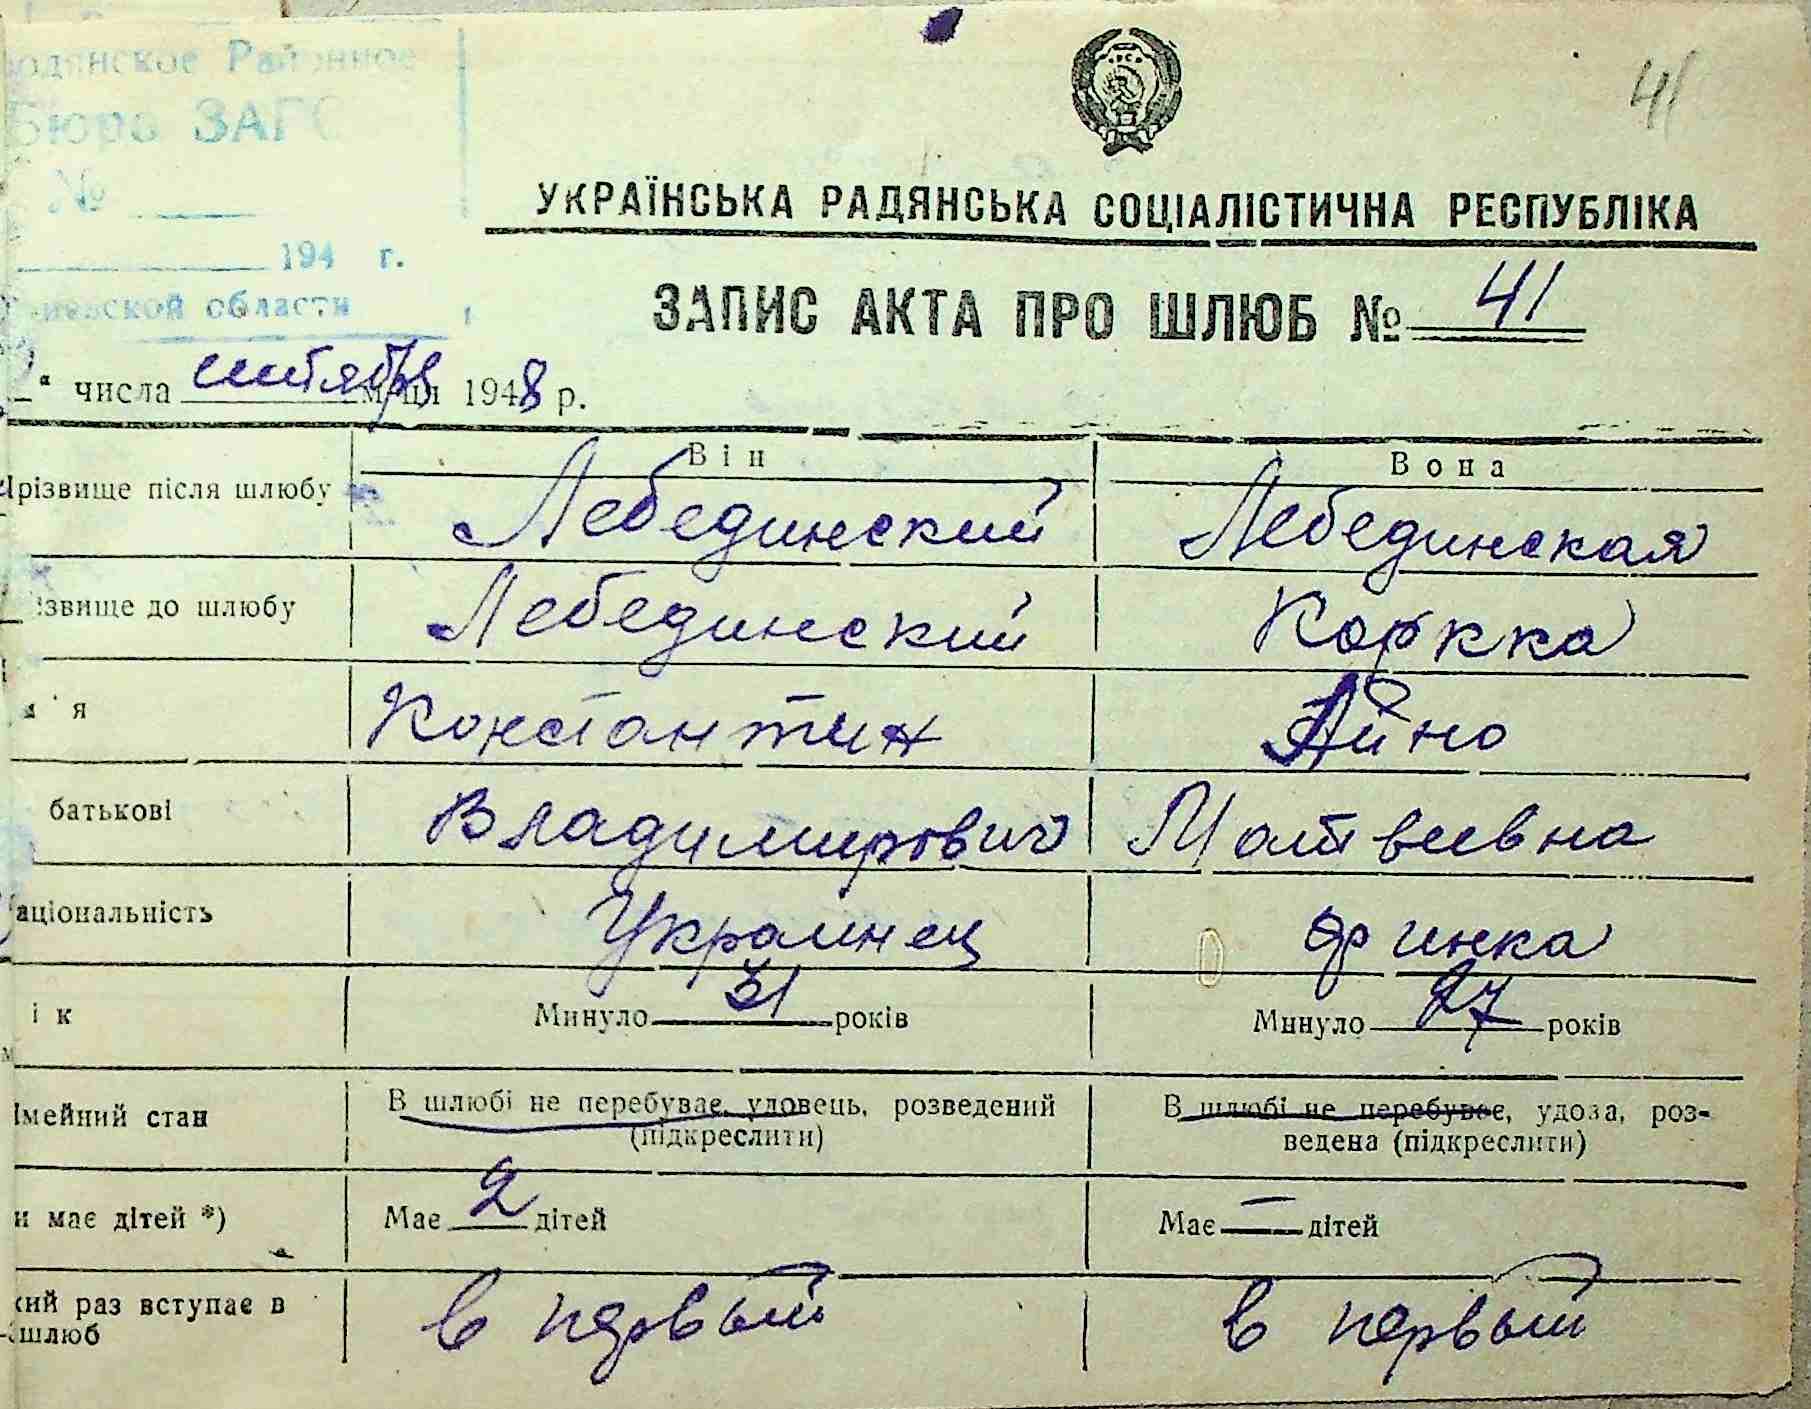 41
Районное
Бюро ЗАГС
№
194 г.
области
УКРАЇНСЬКА РАДЯНСЬКА СОЦІАЛІСТИЧНА РЕСПУБЛІКА
ЗАПИС АКТА ПРО ШЛЮБ № 41
" числа сентября м-ця 1948 р.
Він Вона
Прізвище після шлюбу Лебединский Лебединская
ізвище до шлюбу Лебединский Коркка
м'я Константин Айно
батькові Владимирович Матвеевна
аціональність Украинец финка
ік Минуло 31 років Минуло 27 років
імейний стан В шлюбі не перебуває, удовець, розведений (підкреслити) В шлюбі не перебуває, удова, роз-
ведена (підкреслити)
и має дітей *) Має 2 дітей Має — дітей
кий раз вступає в шлюб в первый в первый